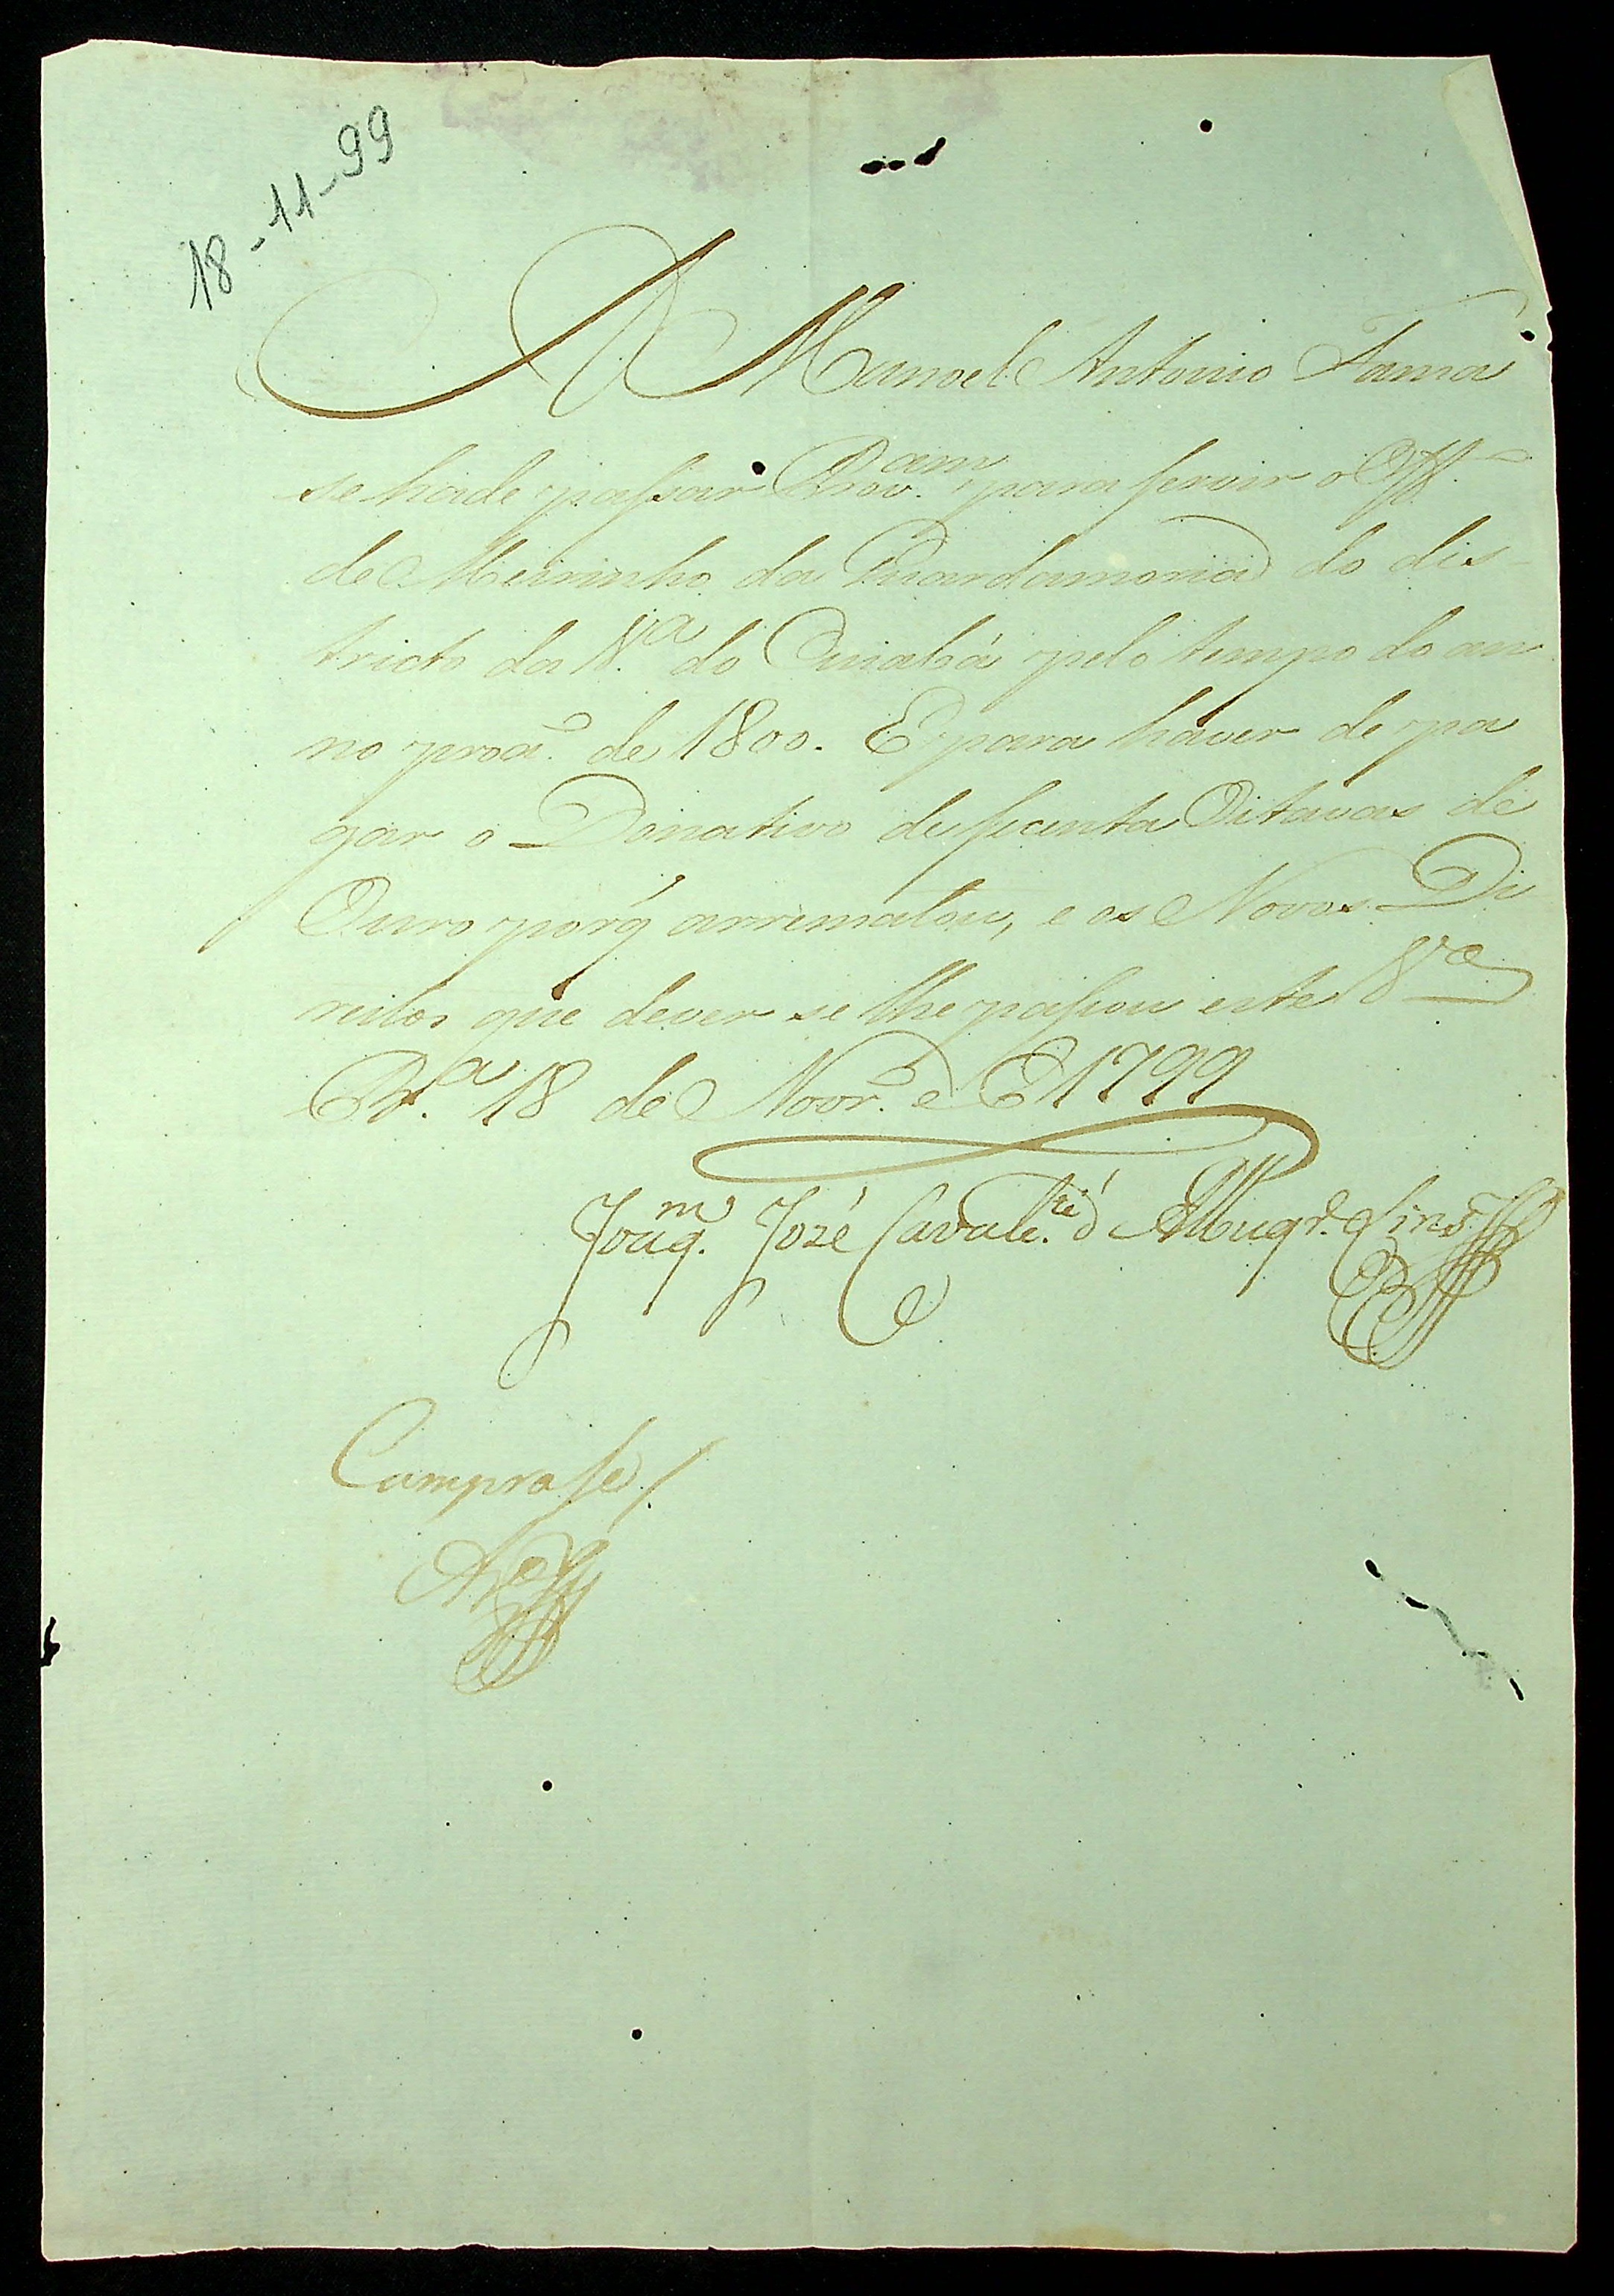 18-11-99
A Manoel Antonio Fama
se hade passar Prov.am para servir o Off.o
de Meirinho da Guardamoria do dis-
tricto da V.a do Cuiabá pelo tempo do an
no prox.o de 1800. E para háver de pa
gar o Donativo de secenta Oitavas de
Ouro porq̃ arrematou, e os Novos Di
reitos que dever se lhe passou este
18 de Novr.o de 1799
Joaq.m José Cavalc.te d'Albuqr.e Lins
Cumprase/.